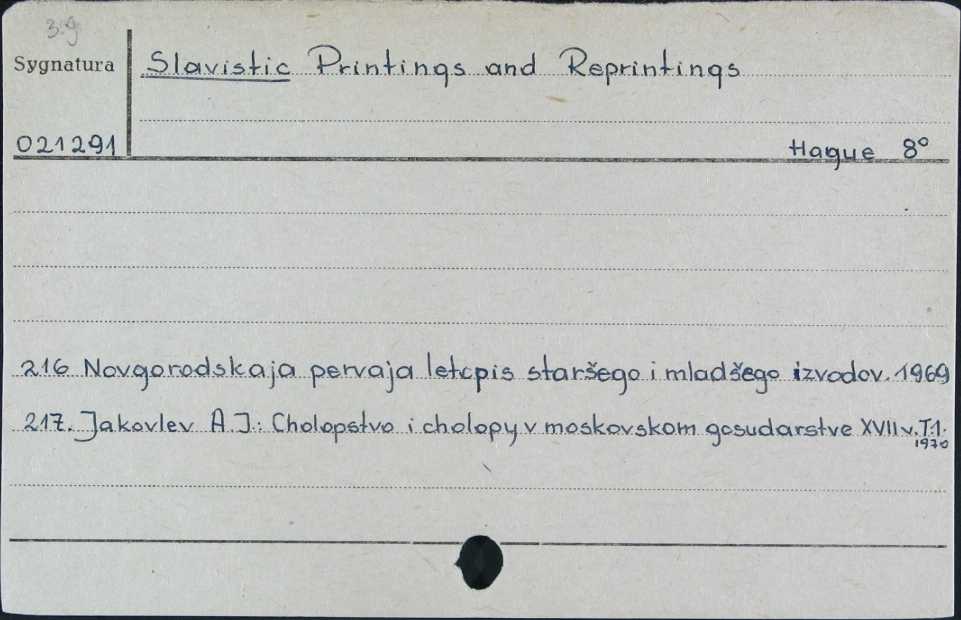 3.9
Sygnatura
Slavistic Printings and Reprintings
021291
Hague 8°
216 Novgorodskaja pervaja letopis staršego i mladšego izvodov. 1969
217. Jakovlev A.I.: Cholopstvo i cholopy v moskovskom gosudarstve XVII v. T.1.
1970